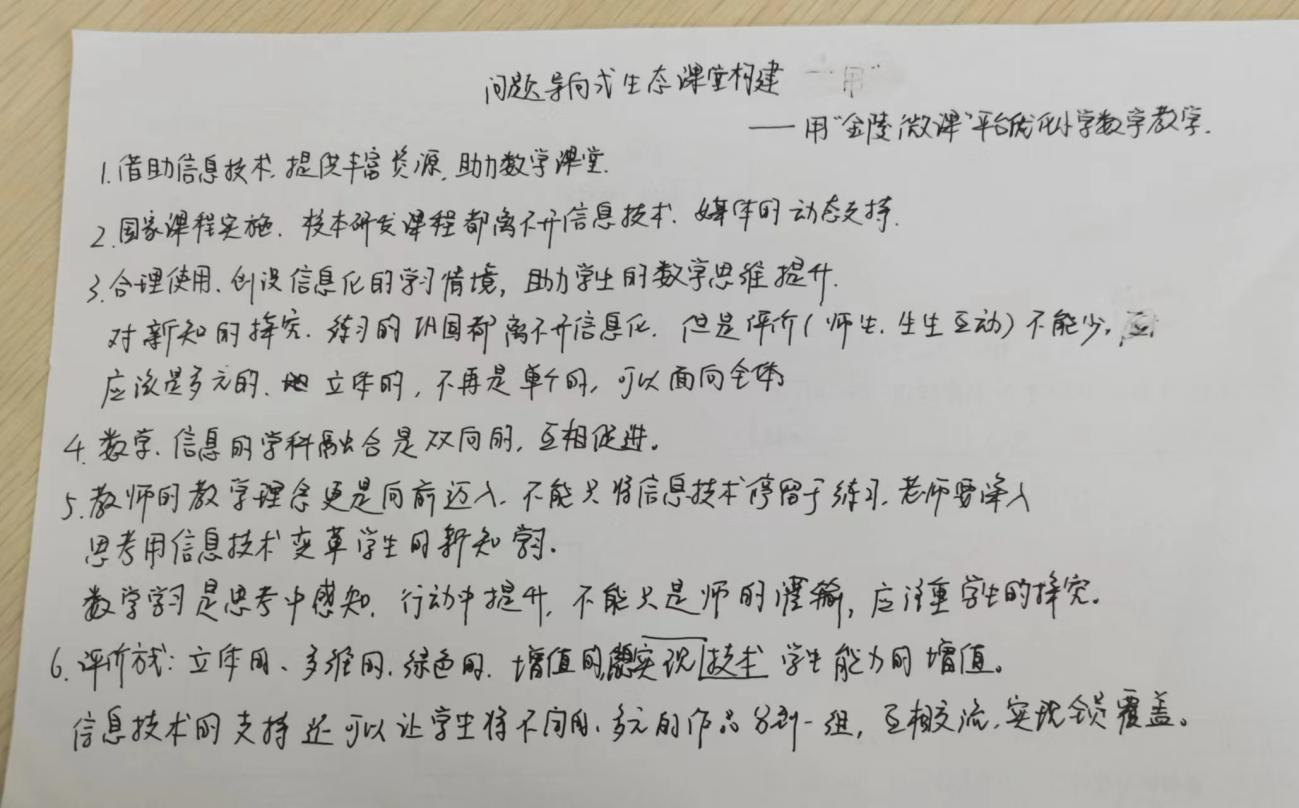 问题导向式生态课堂构建
——用"金陵微课"平台优化小学数学教学.
1.借助信息技术,提供丰富资源,助力数学课堂.
2.国家课程实施、校本研发课程都离不开信息技术、媒体的动态支持.
3.合理使用、创设信息化的学习情境,助力学生的数学思维提升.
对新知的探究、练习的巩固都离不开信息化,但是评价(师生、生生互动)不能少,
应该是多元的、立体的,不再是单个的,可以面向全体
4.数学、信息的学科融合是双向的,互相促进。
5.教师的教学理念更是向前迈入,不能只将信息技术停留于练习,老师要深入
思考用信息技术变革学生的新知学习.
数学学习是思考中感知,行动中提升,不能只是师的灌输,应注重学生的探究。
6.评价方式:立体的、多维的、绿色的、增值的,实现技术学生能力的增值。
信息技术的支持还可以让学生将不同的、多元的作品分到一组,互相交流,实现全员覆盖。